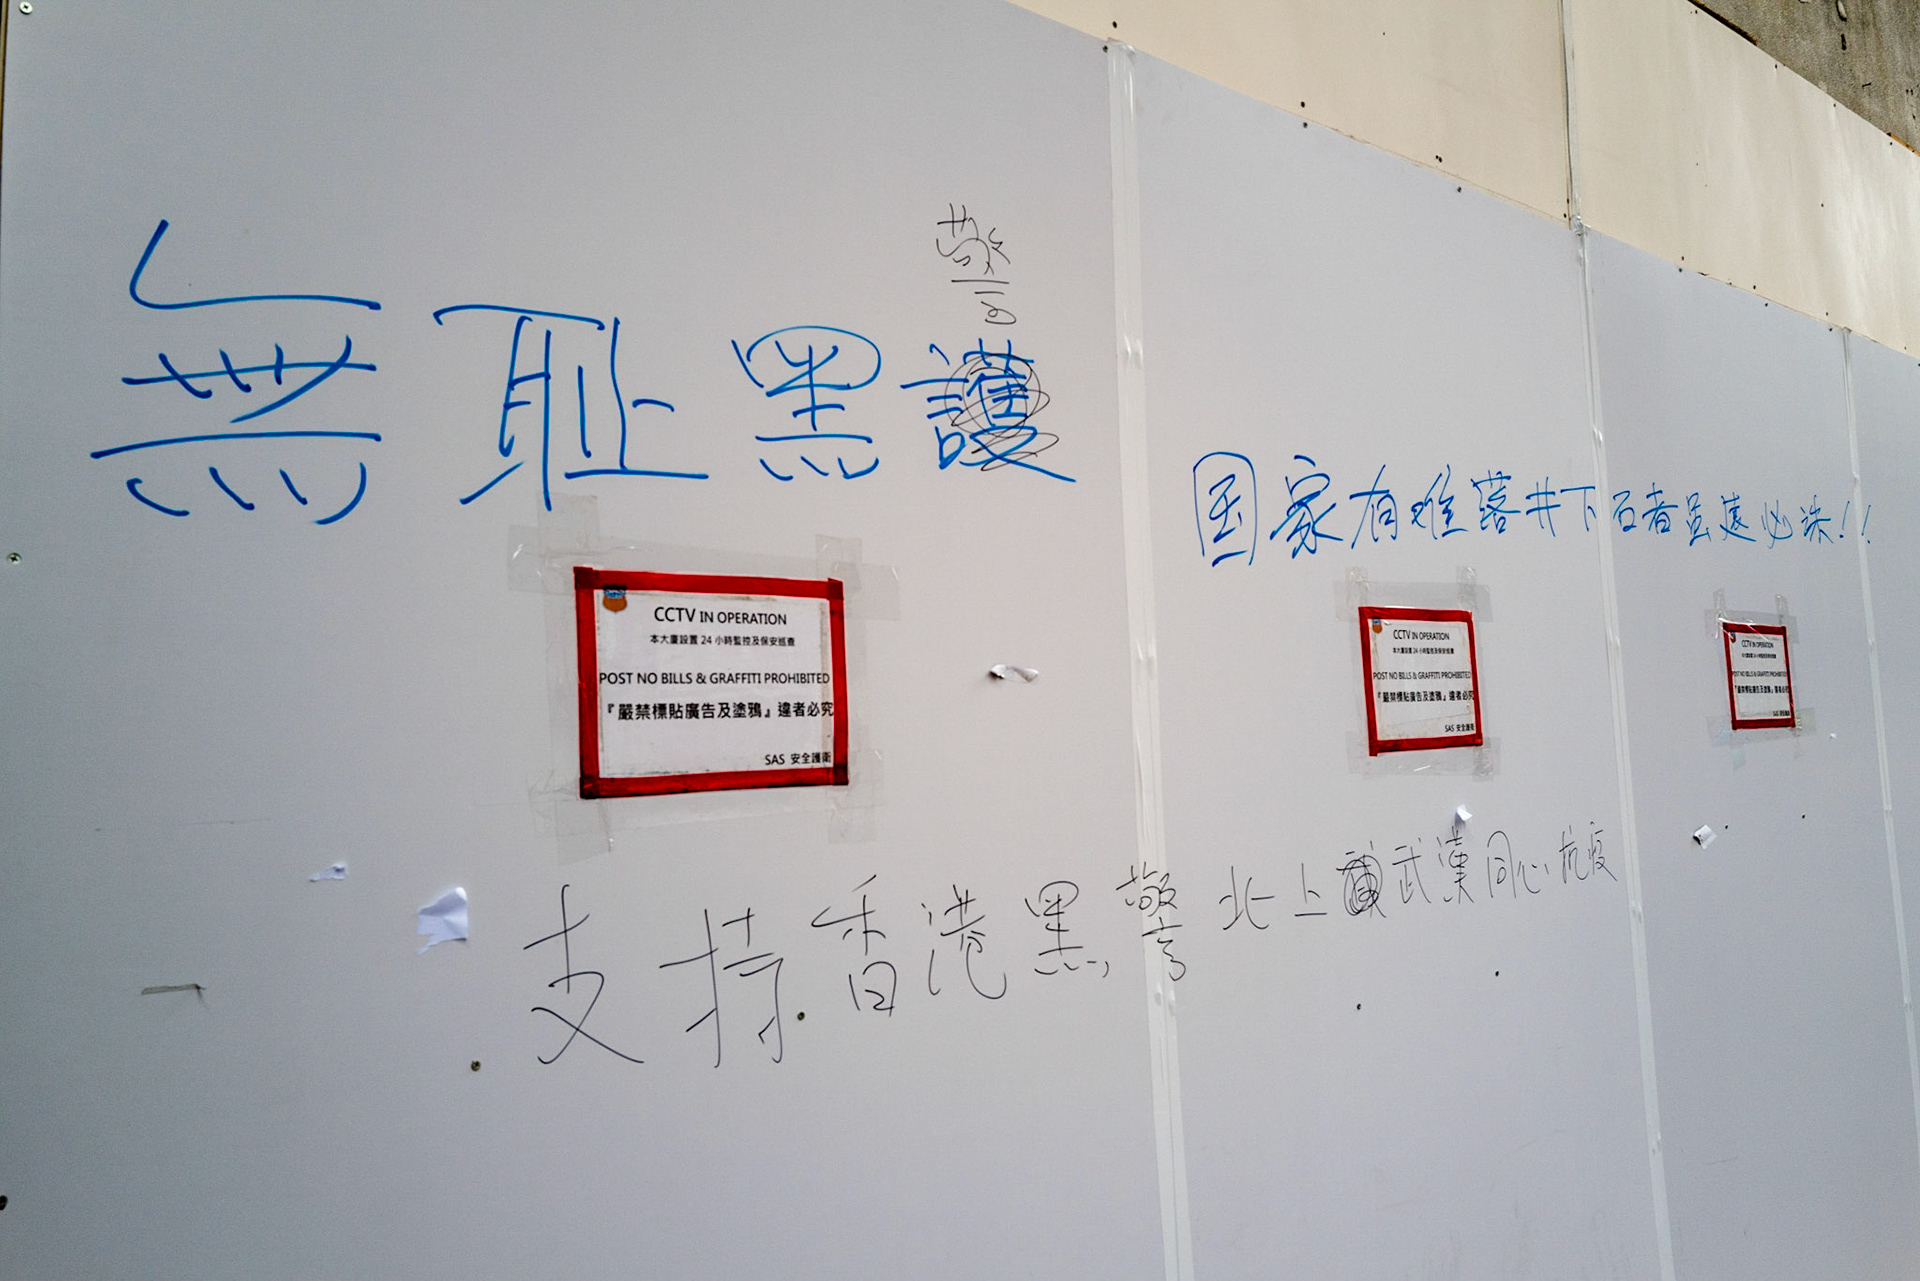 警
無耻黑護
国家有难落井下石者虽远必诛!!
CCTV IN OPERATION
本大廈設置 24 小時監控及保安巡查
POST NO BILLS & GRAFFITI PROHIBITED
『嚴禁標貼廣告及塗鴉』違者必究
SAS 安全護衛
CCTV IN OPERATION
本大廈設置 24 小時監控及保安巡查
POST NO BILLS & GRAFFITI PROHIBITED
『嚴禁標貼廣告及塗鴉』違者必究
SAS 安全護衛
CCTV IN OPERATION
本大廈設置 24 小時監控及保安巡查
POST NO BILLS & GRAFFITI PROHIBITED
『嚴禁標貼廣告及塗鴉』違者必究
SAS 安全護衛
支持香港黑警北上武漢同心抗疫